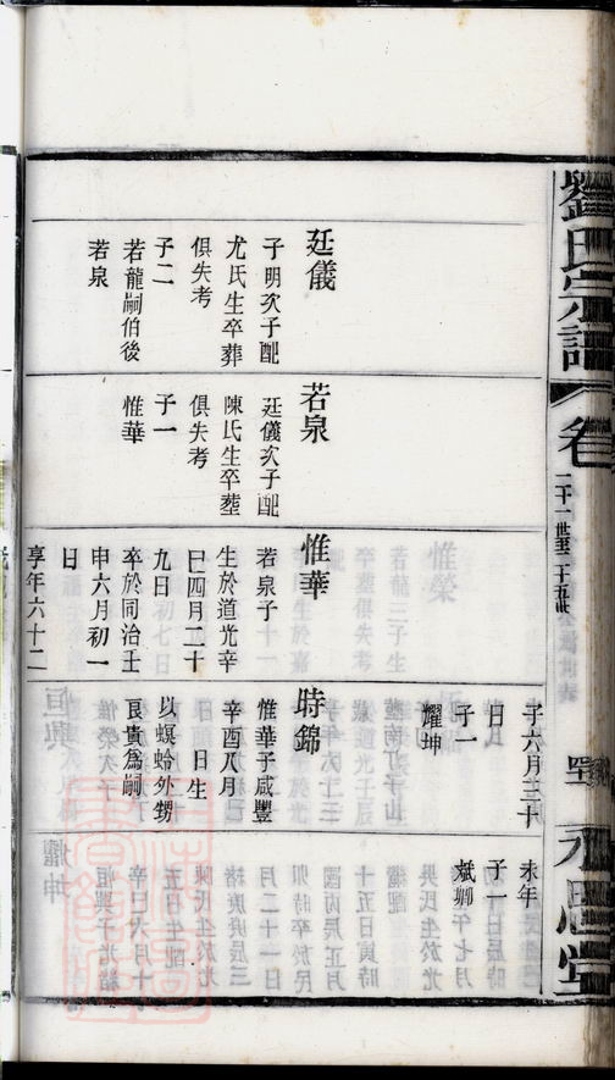 劉氏宗譜
卷
二十一世至二十五世
永思堂
廷儀
子明次子配
尤氏生卒葬
俱失考
子二
若龍嗣伯後
若泉
若泉
廷儀次子配
陳氏生卒塟
俱失考
子一
惟華
惟華
若泉子
生於道光辛
巳四月二十
九日
卒於同治壬
申六月初一
日
享年六十二
子六月三十
日
子一
耀坤
時錦
惟華子咸豐
辛酉八月
日生
以螟蛉外甥
良貴爲嗣
未年
子一
斌卿